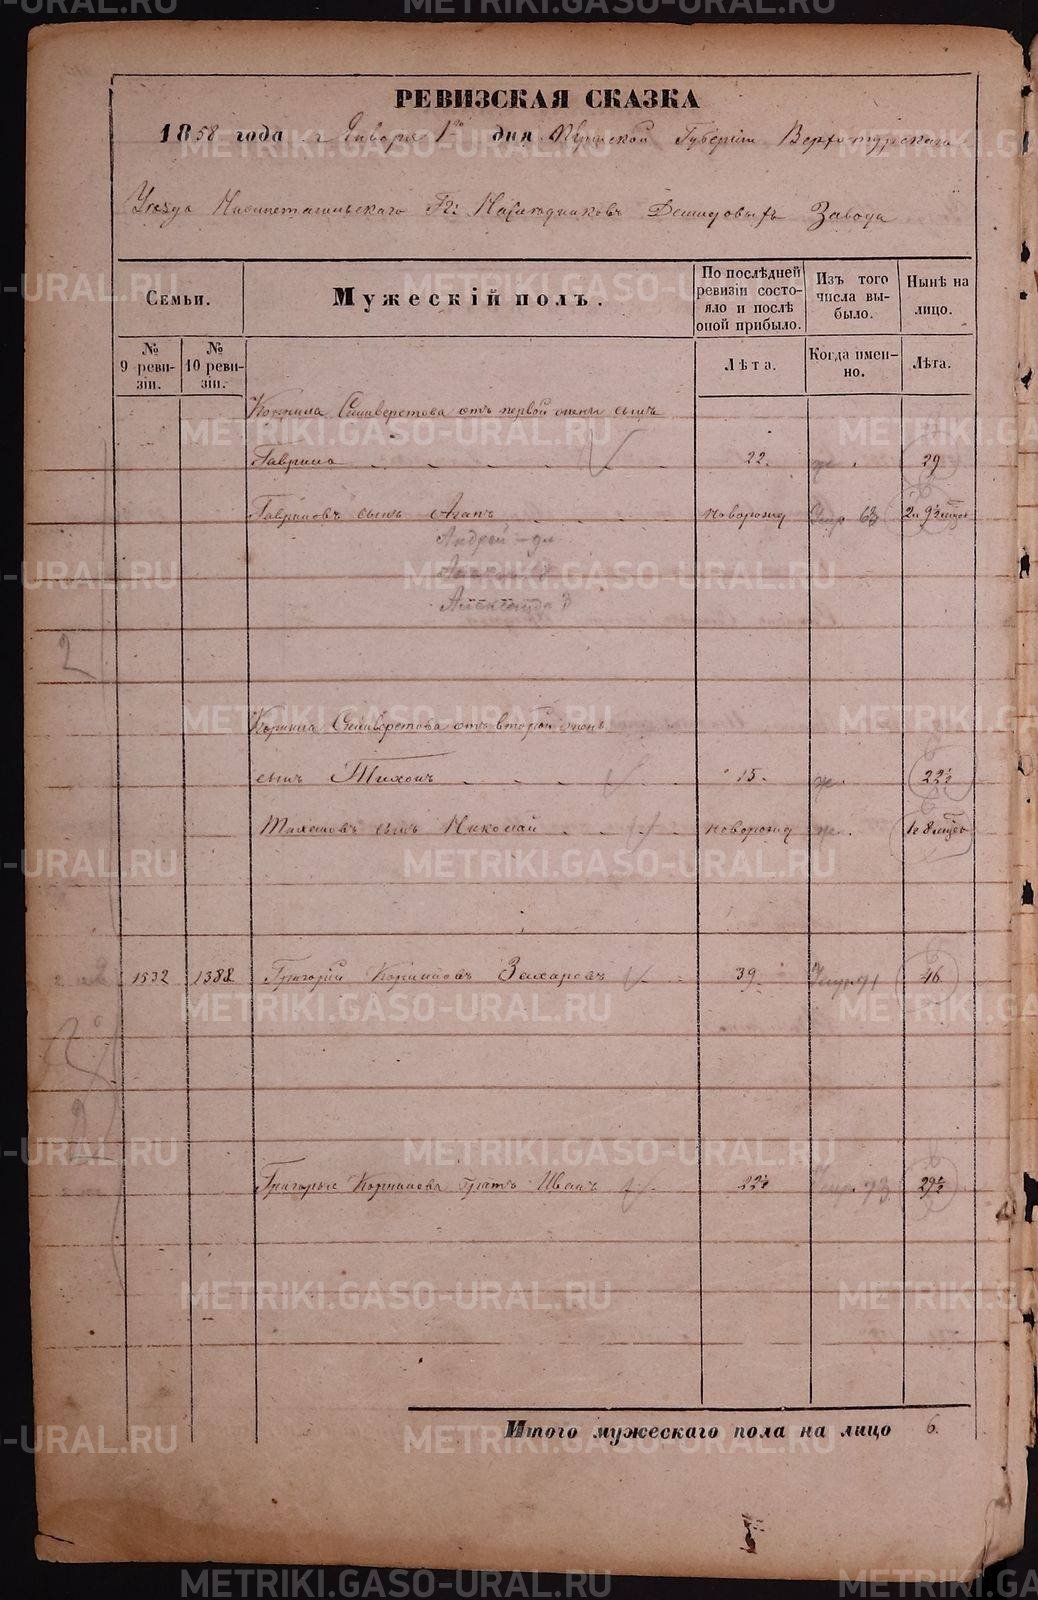 РЕВИЗСКАЯ СКАЗКА
1858 года Января 1го дня Пермской Губернии Верхотурскаго
Уезда Нижнетагильскаго Гг: Наследниковъ Демидовыхъ Завода
Семьи.
Мужескій полъ.
По послѣдней ревизіи состояло и послѣ оной прибыло.
Изъ того числа выбыло.
Нынѣ на лицо.
№ 9 ревизіи.
№ 10 ревизіи.
Лѣта.
Когда именно.
Лѣта.
Корнила Селиверстова отъ первой жены сынъ
Гаврило 22. 29
Гавриловъ сынъ Агапъ новорожд Умер 63 2и 9½ мцов
Андрей
Александр
2
Корнила Селиверстова отъ второй жены
сынъ Тихонъ 15. 22½
Тихоновъ сынъ Николай новорожд 8 мцов
1532 1388 Григорій Корниловъ Захаровъ 39. 46
Григорья Корнилова братъ Иванъ 22½ 73 29½
Итого мужескаго пола на лицо 6.
METRIKI.GASO-URAL.RU